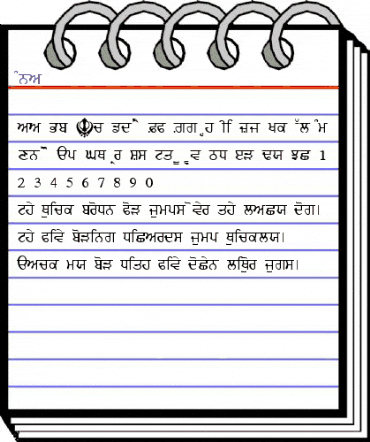 ੰਨਅ
ਆਅ ਭਬ ☬ਚ ਡਦੌ ੈ ਫ਼ਫ ਗ਼ਗ ੍ਹ ੀਿ ਜ਼ਜ ਖਕ ੱਲ ੰਮ
ਣਨੋ ੌ ੳਪ ਘਥ ੍ਰ ਸ਼ਸ ਟਤ ੂੁ ੍ਵ ਠਧ ੲੜ ਢਯ ਝਛ 1
2 3 4 5 6 7 8 9 0
ਟਹੇ ਥੁਚਿਕ ਬਰੋਧਨ ਫੋੜ ਜੁਮਪਸ ੋਵੇਰ ਤਹੇ ਲਅਛਯ ਦੋਗ।
ਟਹੇ ਫਵਿੇ ਬੋੜਨਿਗ ਧਛਿਅਰਦਸ ਜੁਮਪ ਥੁਚਿਕਲਯ।
ੳਅਚਕ ਮਯ ਬੋੜ ਧਤਿਹ ਫਵਿੇ ਦੋਛੇਨ ਲਥਿੁਰ ਜੁਗਸ।